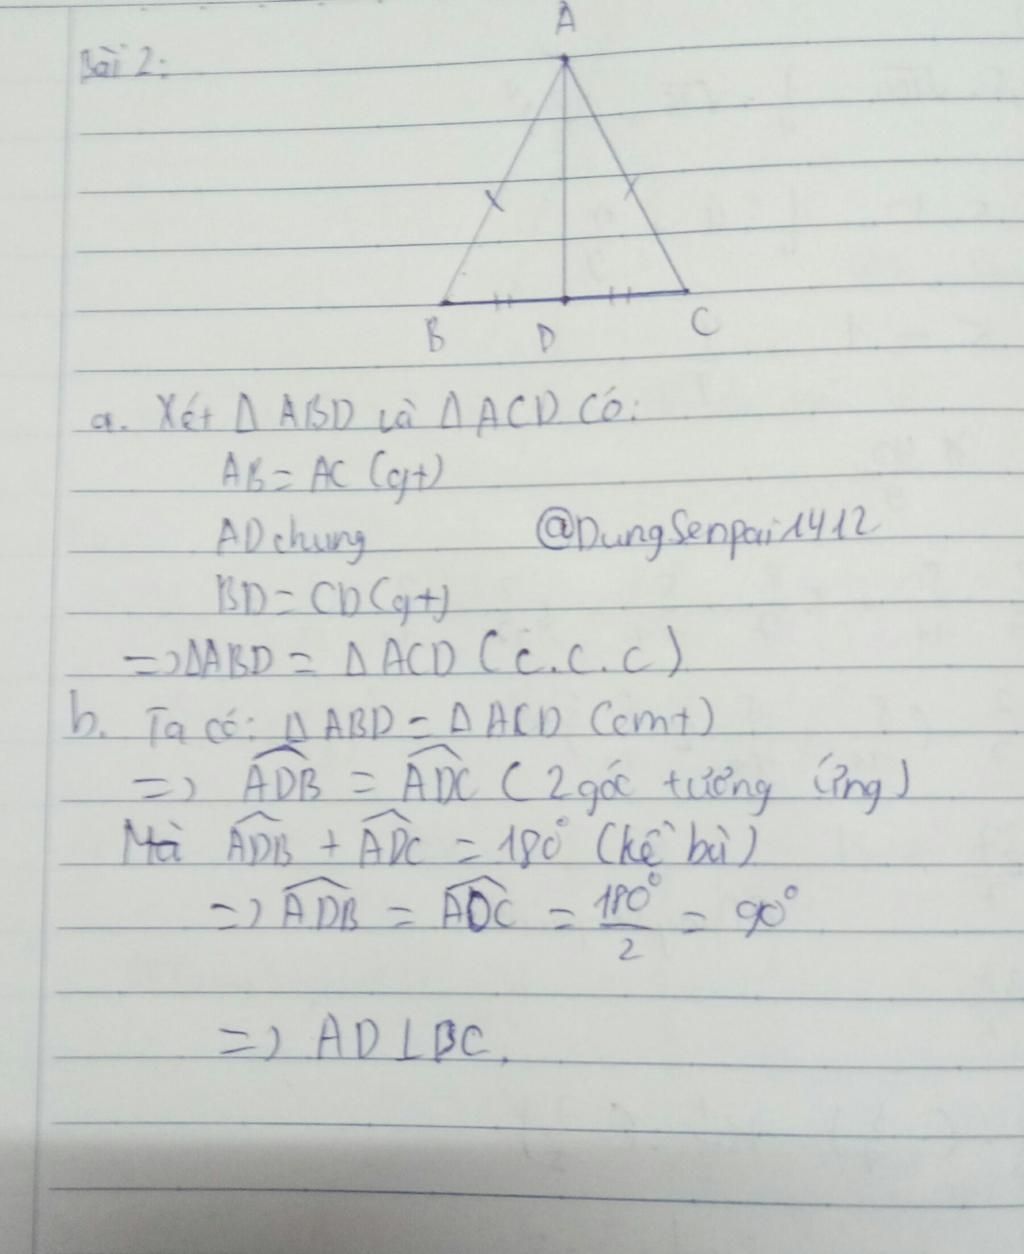 Bài 2:
A
B D C
a. Xét Δ ABD và Δ ACD có:
AB = AC (gt)
AD chung
@DungSenpai1412
BD = CD (gt)
=> ΔABD = Δ ACD (c.c.c)
b. Ta có: Δ ABD = Δ ACD (cmt)
=> \widehat{ADB} = \widehat{ADC} (2 góc tương ứng)
Mà \widehat{ADB} + \widehat{ADC} = 180° (kề bù)
=> \widehat{ADB} = \widehat{ADC} = \frac{180°}{2} = 90°
=> AD ⊥ BC.